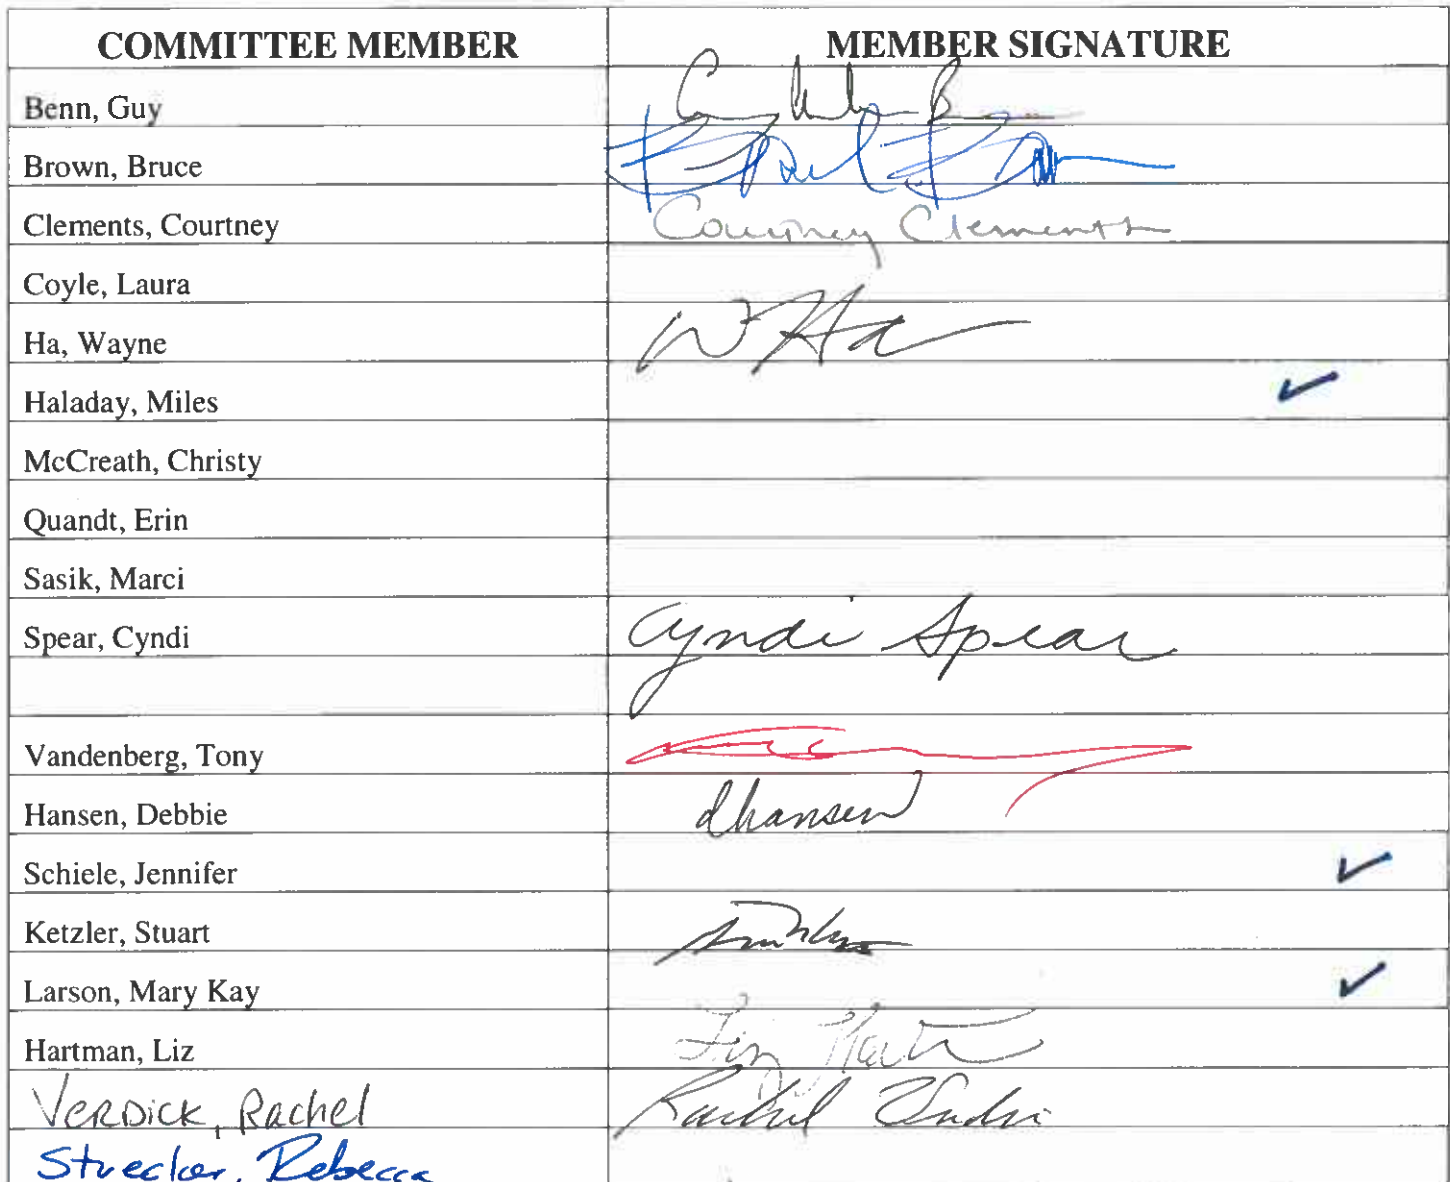 COMMITTEE MEMBER MEMBER SIGNATURE
Benn, Guy
Brown, Bruce
Clements, Courtney Courtney Clements
Coyle, Laura
Ha, Wayne W Ha
Haladay, Miles ✓
McCreath, Christy
Quandt, Erin
Sasik, Marci
Spear, Cyndi Cyndi Spear
Vandenberg, Tony
Hansen, Debbie dhansen
Schiele, Jennifer ✓
Ketzler, Stuart
Larson, Mary Kay ✓
Hartman, Liz
VERDICK, Rachel Rachel
Strecker, Rebecca